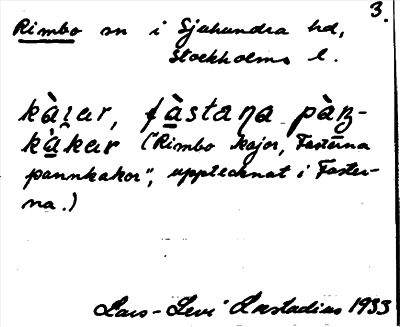 3.
Rimbo sn i Sjuhundra hd,
Stockholms l.
kàɩar, fàstaṉa pàṉ-
kàkar ("Rimbo kajor, Fasterna
pannkakor", upptecknat i Faster-
na.)
Lars-Levi Læstadius 1933